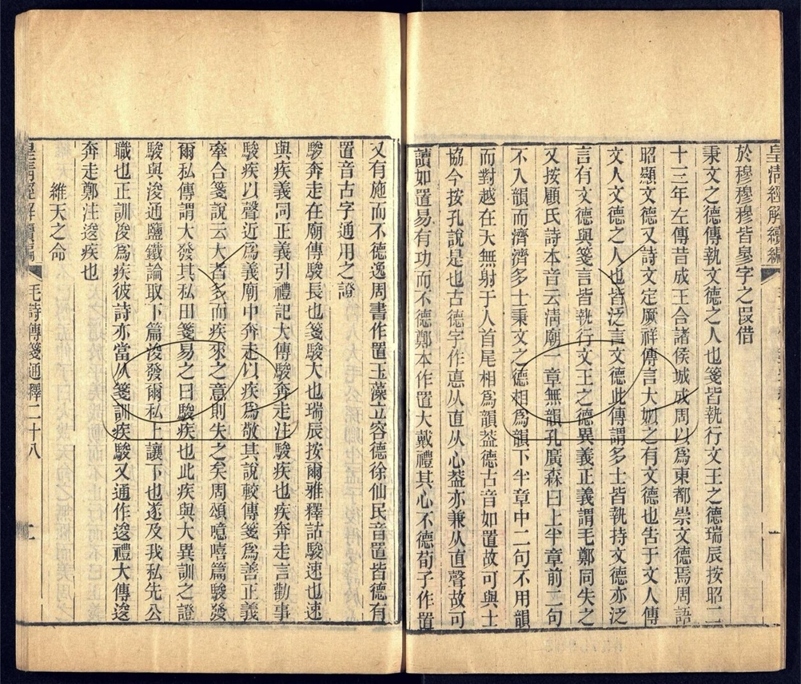 皇淸經解續編
於穆穆穆皆字之叚借
秉文之德傳執文德之人也箋皆執行文王之德瑞辰按昭二
十三年左傳昔成王合諸侯城成周以爲東都崇文德焉周語
昭顯文德又詩文定厥祥傳言大姒之有文德也告于文人傳
文人文德之人也皆泛言文德此傳謂多士皆執持文德亦泛
言有文德與箋言皆執行文王之德異義正義謂毛鄭同失之
又按顧氏詩本音云淸廟一章無韻孔廣森曰上半章前二句
不入韻而濟濟多士秉文之德相爲韻下半章中二句不用韻
而對越在天無射于人首尾相爲韻葢德古音如置故可與士
協今按孔說是也古德字作悳从直从心葢亦兼从直聲故可
讀如置易有功而不德鄭本作置大戴禮其心不德荀子作置
又有施而不德逸周書作置玉藻立容德徐仙民音置皆德有
置音古字通用之證
駿奔走在廟傳駿長也箋駿大也瑞辰按爾雅釋詁駿速也速
與疾義同正義引禮記大傳駿奔走注駿疾也疾奔走言勸事
駿疾以聲近爲義廟中奔走以疾爲敬其說較傳箋爲善正義
牽合箋說云大者多而疾來之意則失之矣周頌噫嘻篇駿發
爾私傳謂大發其私田箋易之曰駿疾也此疾與大異訓之證
駿與浚通鹽鐵論取下篇浚發爾私上讓下也遂及我私先公
職也正訓浚爲疾彼詩亦當从箋訓疾駿又通作逡禮大傳逡
奔走鄭注逡疾也
維天之命
皇淸經解續編
毛詩傳箋通釋二十八